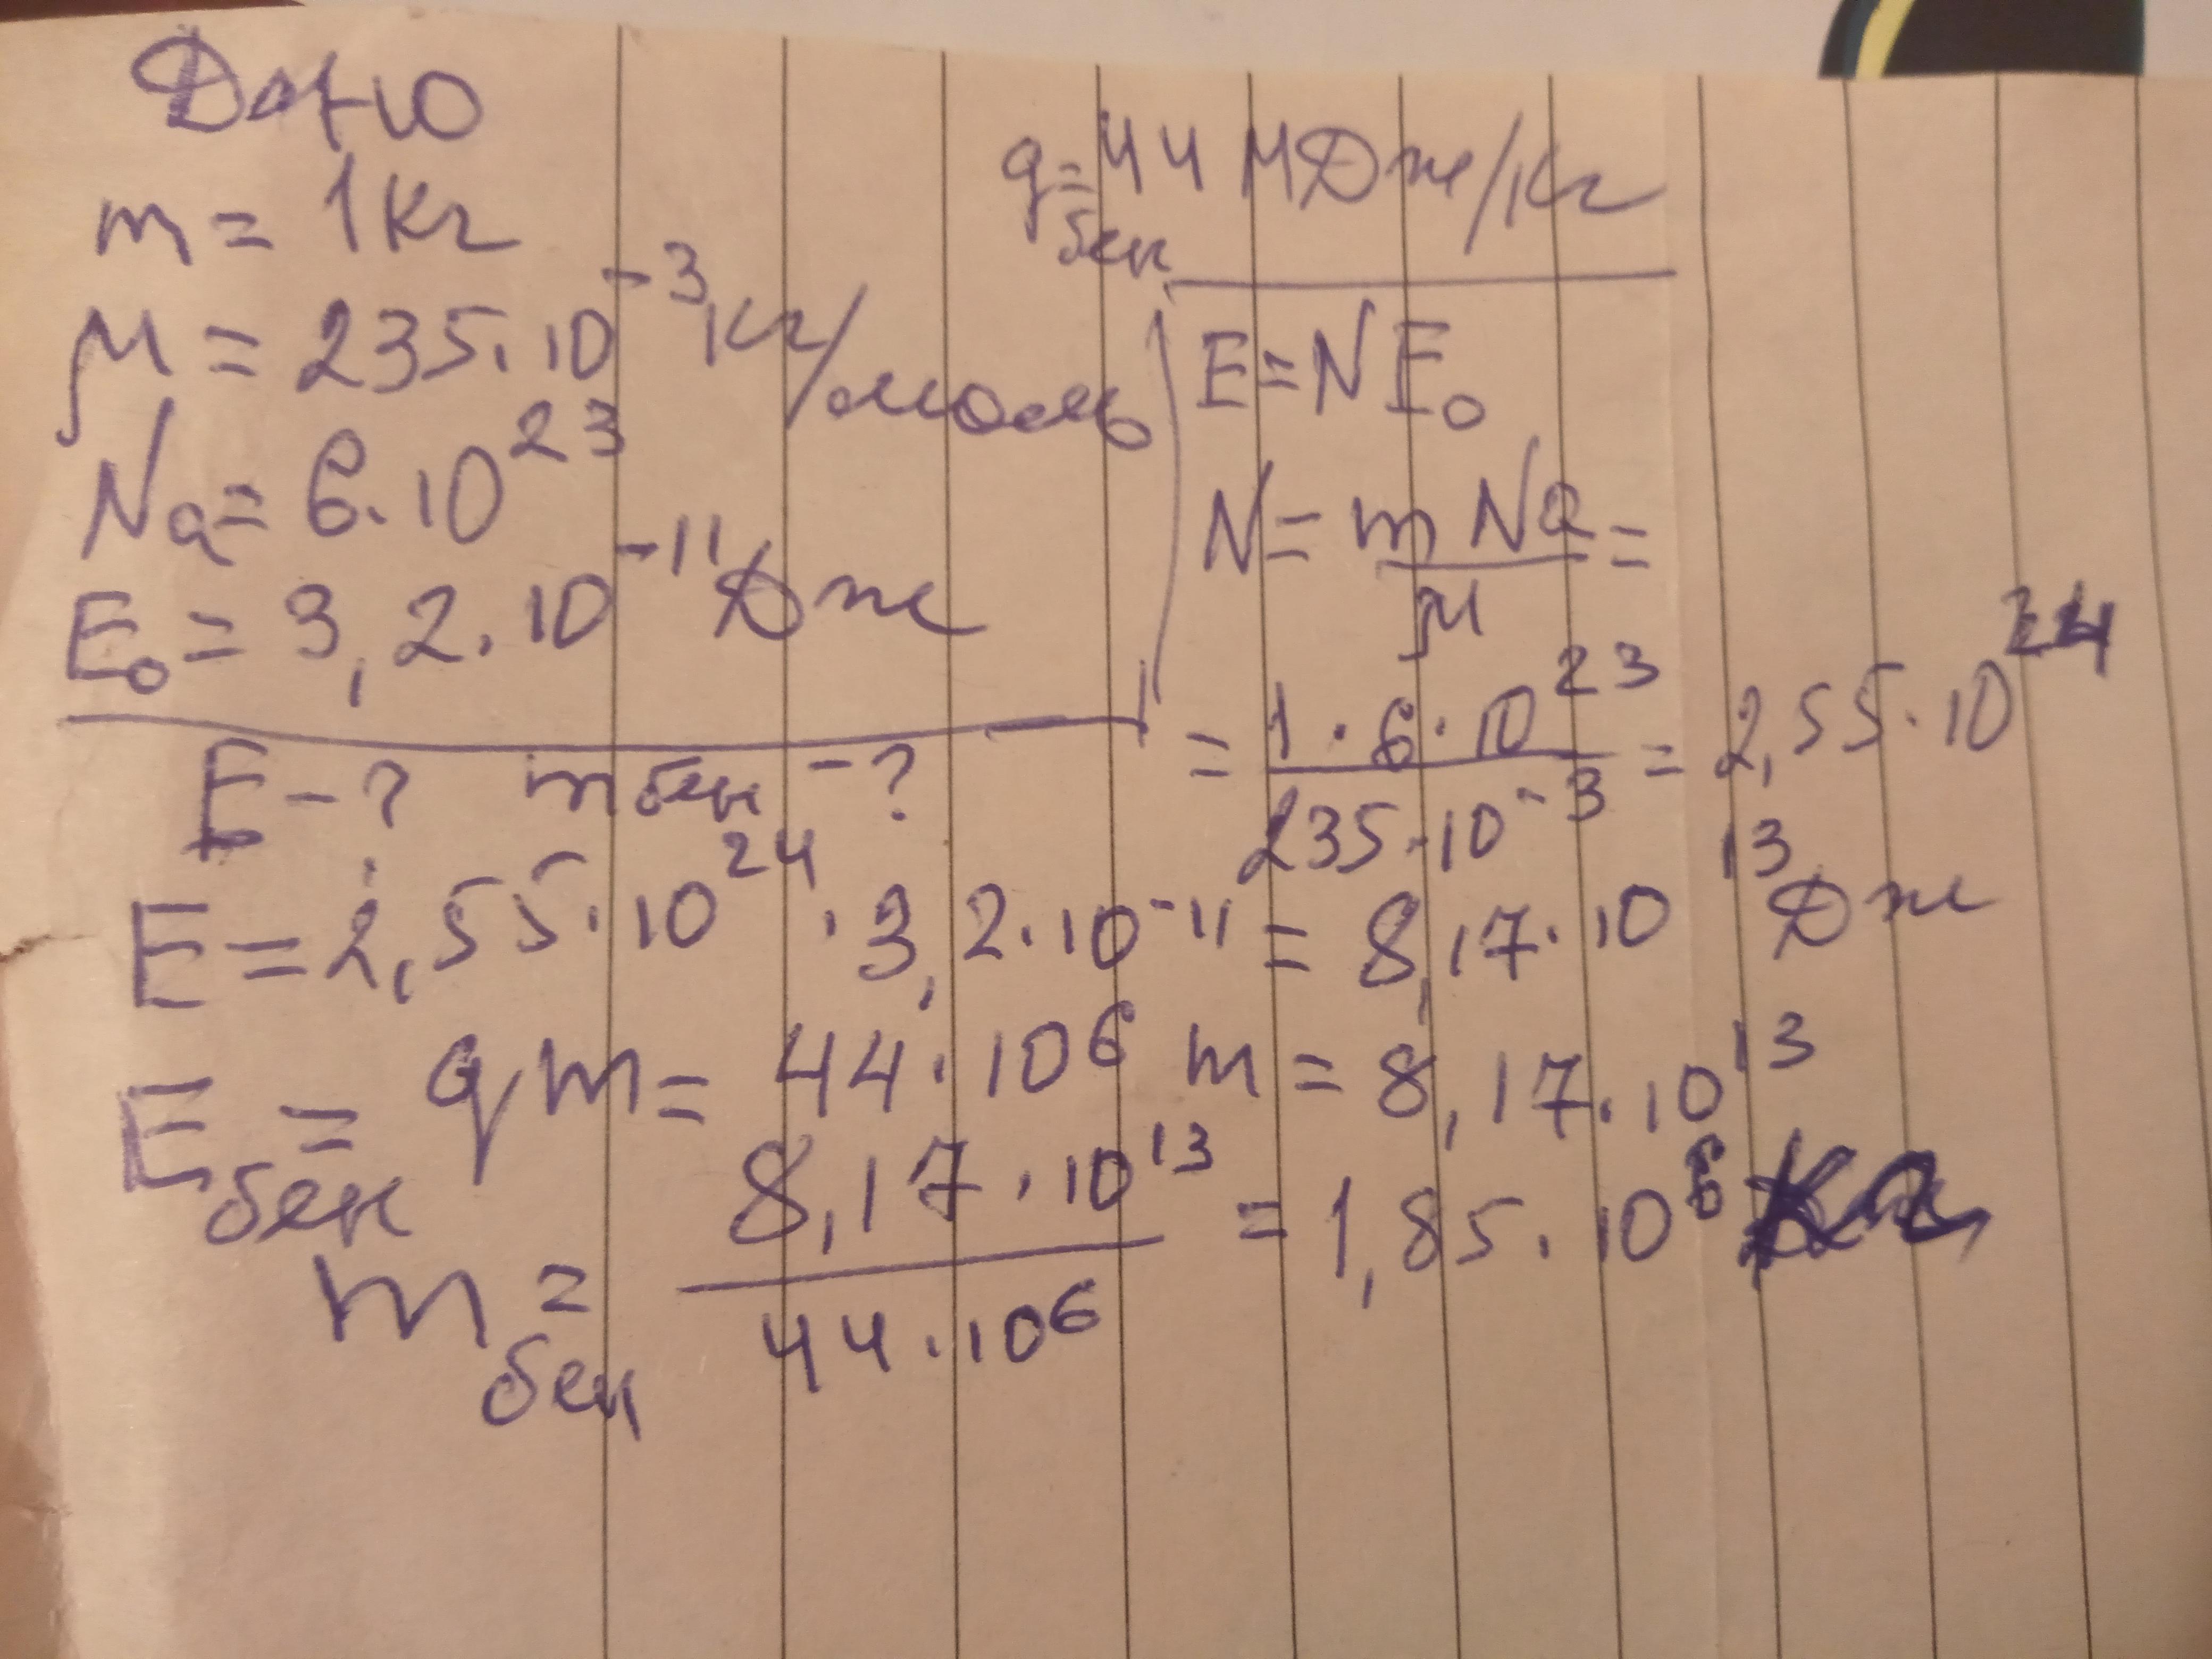 Дано
m = 1 кг
μ = 235·10⁻³ кг/моль
Na = 6·10²³
E₀ = 3,2·10⁻¹¹ Дж
E - ? m бен - ?
q бен = 44 МДж/кг
E = NE₀
N = m Na / μ =
= 1·6·10²³ / 235·10⁻³ = 2,55·10²⁴
E = 2,55·10²⁴ · 3,2·10⁻¹¹ = 8,17·10¹³ Дж
E бен = qm = 44·10⁶ m = 8,17·10¹³
m бен = 8,17·10¹³ / 44·10⁶ = 1,85·10⁶ кг